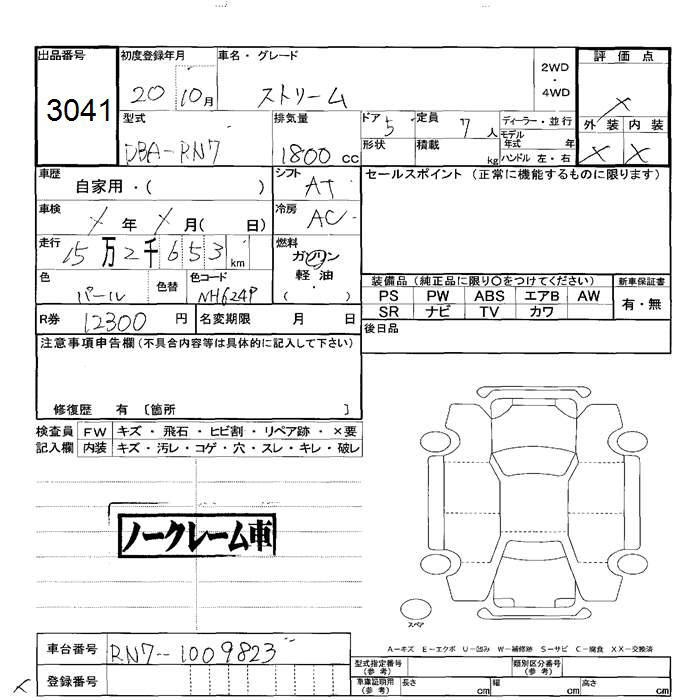 出品番号 初度登録年月 車名・グレード 2WD ・ 4WD 評価点
3041 20 10月 ストリーム X
型式 排気量 ドア 5 定員 7人 ディーラー・並行 外装 内装
DBA-RN7 1800cc 形状 積載 kg モデル年式 年 X X
ハンドル 左・右
車歴 自家用・( ) シフト AT セールスポイント (正常に機能するものに限ります)
車検 X年 X月( 日) 冷房 AC
走行 15万2千653km 燃料 ガソリン
軽油
( ・ )
色 パール 色替 色コード NH624P 装備品 (純正品に限り○をつけてください) 新車保証書
PS PW ABS エアB AW 有・無
SR ナビ TV カワ
R券 12300 円 名変期限 月 日 後日品
注意事項申告欄 (不具合内容等は具体的に記入して下さい)
修復歴 有 〔箇所 〕
検査員 FW キズ・飛石・ヒビ割・リペア跡・×要
記入欄 内装 キズ・汚レ・コゲ・穴・スレ・キレ・破レ
ノークレーム車
スペア
A－キズ E－エクボ U－凹み W－補修跡 S－サビ C－腐食 XX－交換済
車台番号 RN7-1009823 型式指定番号 (参考) 類別区分番号 (参考)
X 登録番号 車庫証明用 (参考) 長さ cm 幅 cm 高さ cm